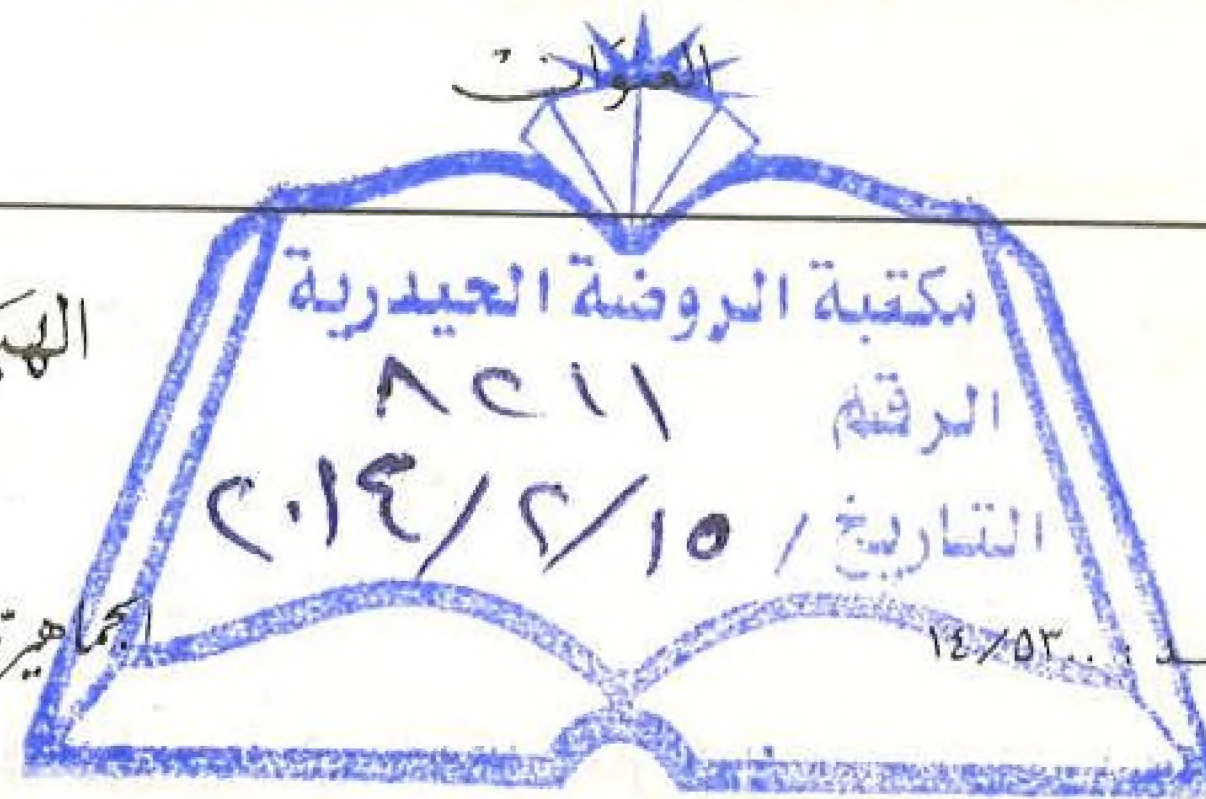 العنوان
مكتبة الروضة الحيدرية
الرقم ٨٢١١
التاريخ / ١٥/٢/٢٠١٤
١٤/٥٣٠٠